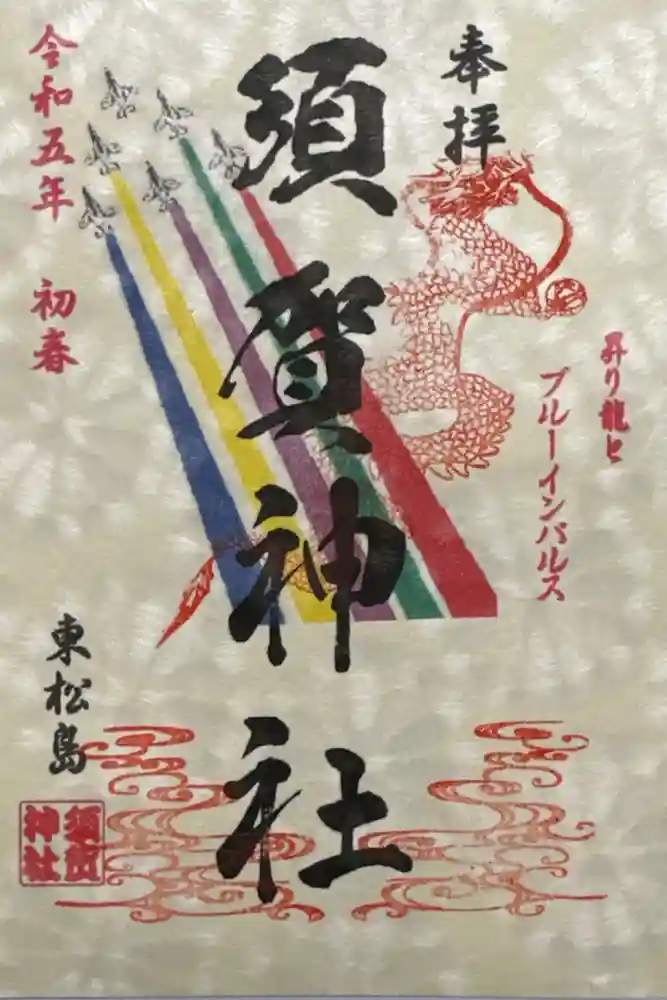 奉拝
昇り龍と
ブルーインパルス
須賀神社
令和五年 初春
東松島
須賀
神社